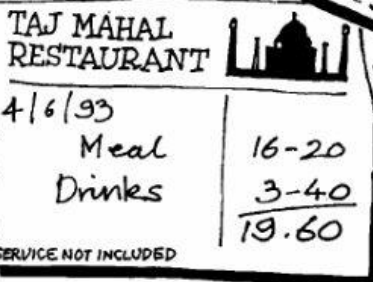 TAJ MAHAL
RESTAURANT
4/6/93
Meal 16-20
Drinks 3-40
19.60
SERVICE NOT INCLUDED